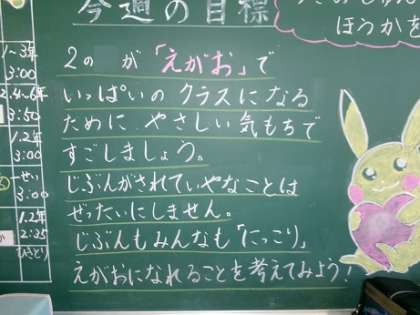 今週の目標
2の が「えがお」で
いっぱいの クラスになる
ために やさしい気もちで
すごしましょう。
じぶんがされていやなことは
ぜったいにしません。
じぶんもみんなも「にっこり」
えがおになれることを考えてみよう!
ほうかを
1~3年
3:00
2.4~6年
3:50
1.2年
3:00
せい
3:00
1.2年
2:25